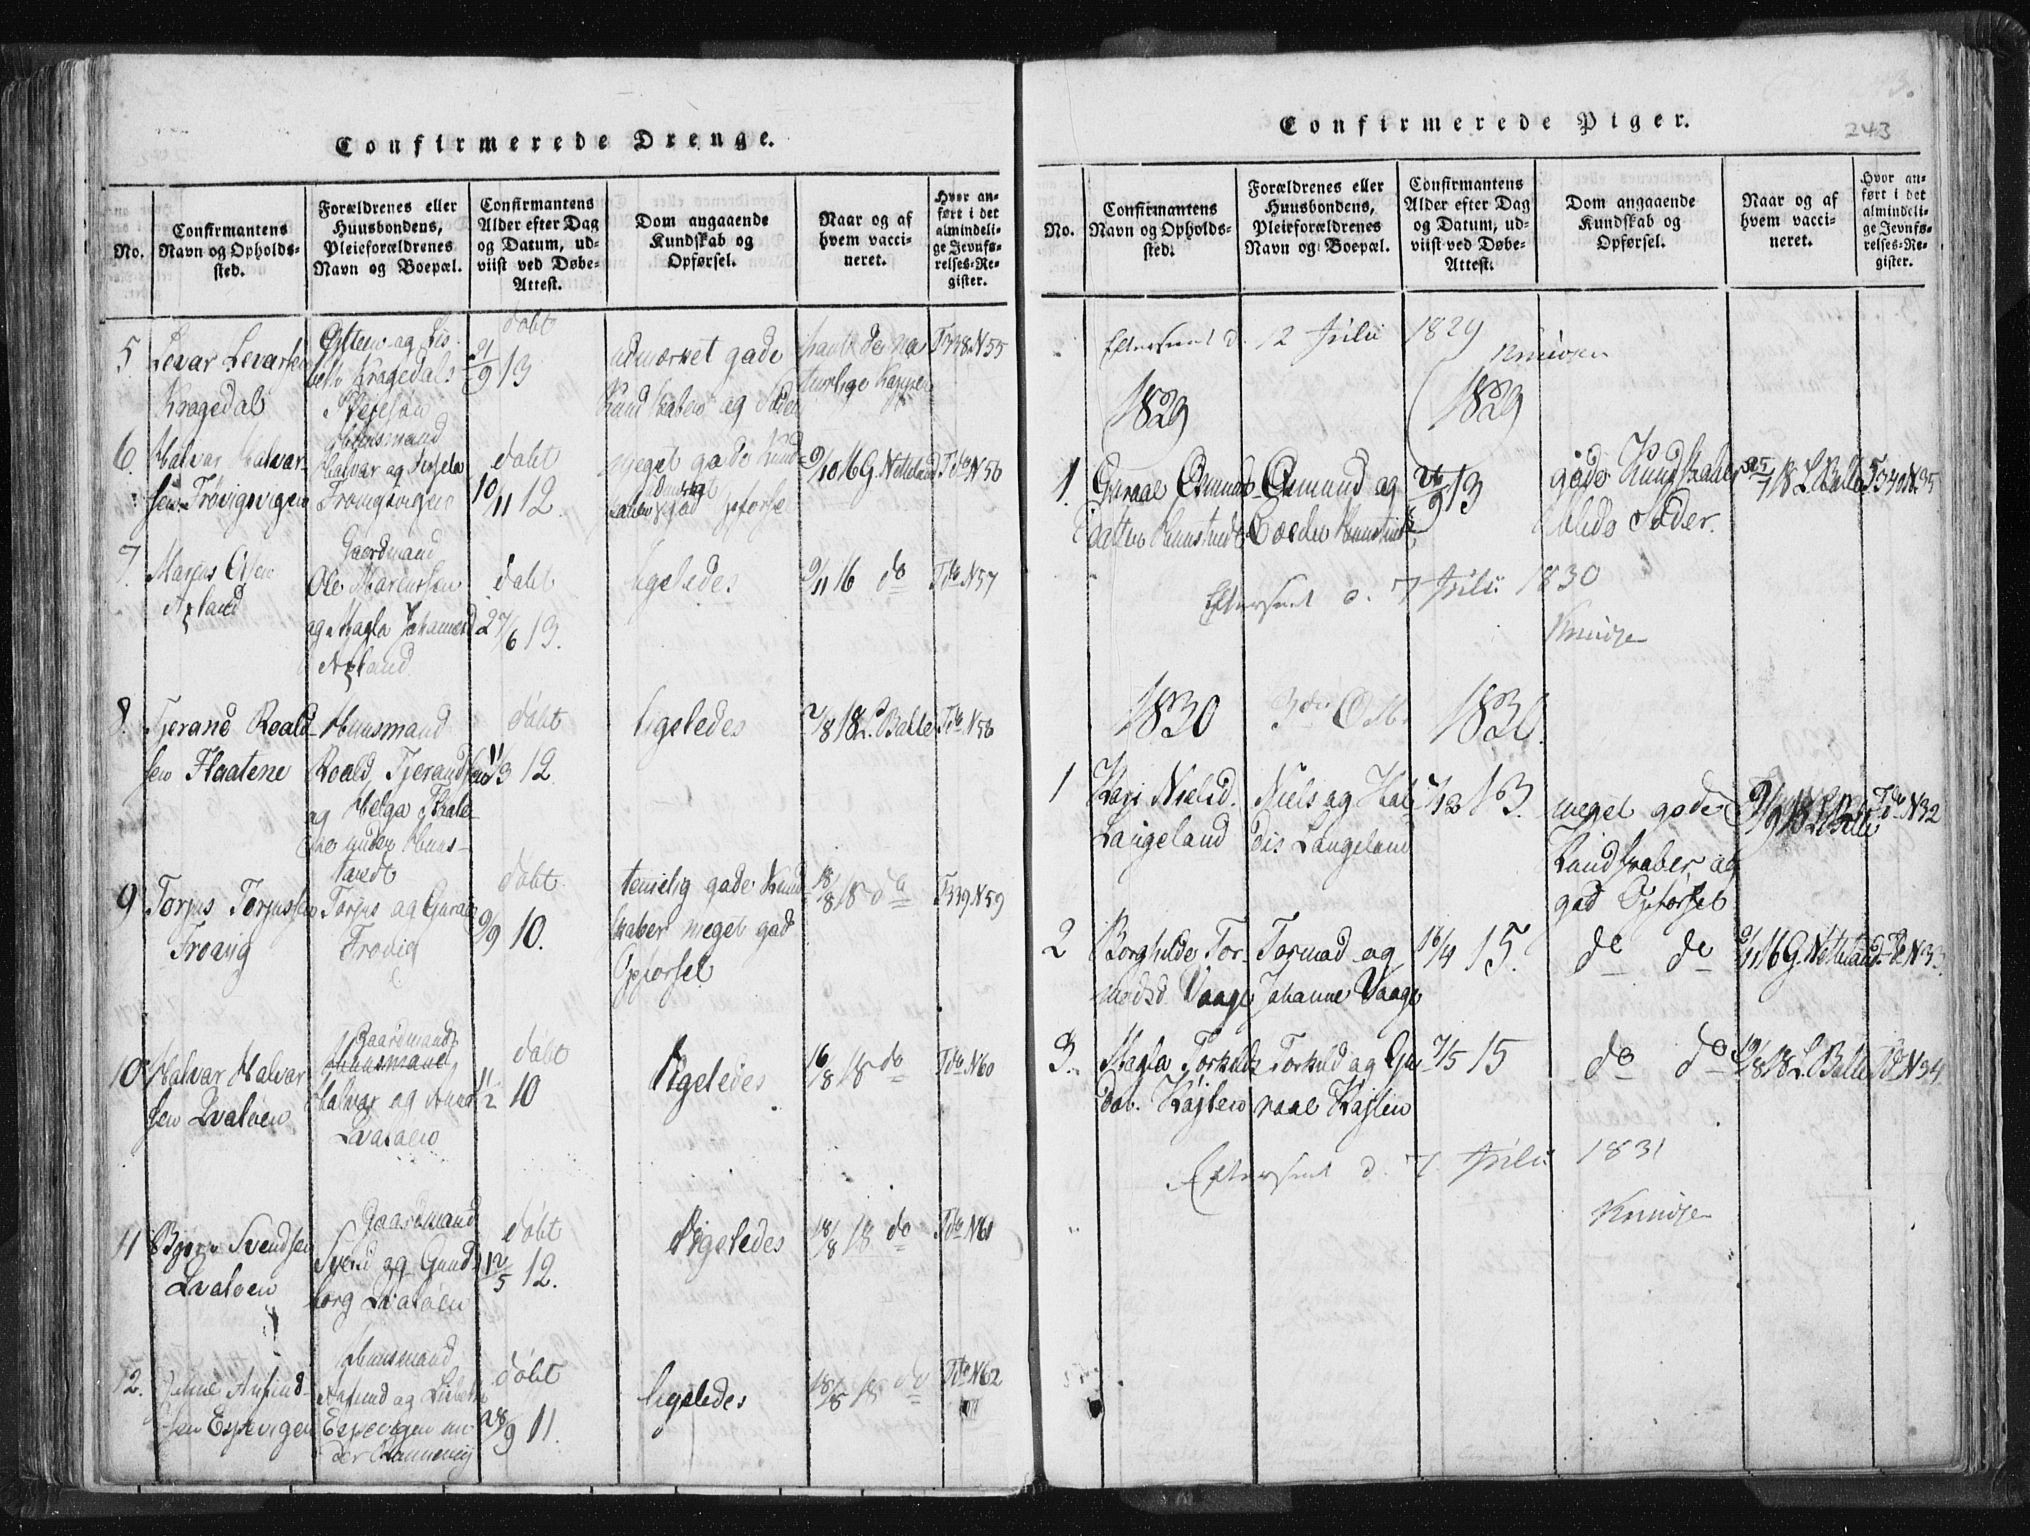 Confirmerede Drenge.
No.
Confirmantens
Navn og Opholds-
sted.
Forældrenes eller
Huusbondens,
Pleieforældrenes
Navn og Boepæl.
Confirmantens
Alder efter Dag
og Datum, ud-
viist ved Døbe-
Attest.
Dom angaaende
Kundskab og
Opførsel.
Naar og af
hvem vacci-
neret.
Hvor an-
ført i det
almindeli-
ge Jevnfø-
relses-Re-
gister.
5
Levar Levarsen
Kragedal
døbt
9 13
gode
Kundskaber og
havt de na
turlige Kopper
T338 N55
6.
Halvor Halvor-
sen Trovigsvigen
Huusmand
Halvor og
Trovigsvigen
døbt
10/11 12.
meget gode Kund-
skaber
9/10 16 G. Netteland
T do N56
7
Olsen
Axland
Gaardmand
Ole
Axland
døbt
27/6 13.
ligeledes
9/11 16 do
T do N57
8.
Tjerand Roald
sen Flaatene
Huusmand
Roald Tjerandsen
og Helga Flate
ne under Huus-
tvedt
døbt
11/3 12
ligeledes
7/8 18 L. Balle
T do N58
9
Torjus Torjussen
Trovig
Torjus og Guroe
Trovig
døbt
9/9 10.
temelig gode Kund
skaber meget god
Opførsel
18/8 18 do
T339 N59
10
Halvor Halvor
sen Qvaløen
Gaardmand
Huusmand
Halvor og
Qvaløen
døbt
11/2 10
ligeledes
16/8 18 do
T do N60
11
Bjørn Svendsen
Qvaløen
Gaardmand
Svend og Gund
borg Qvaløen
døbt
12/5 12.
Ligeledes
18/8 18 do
T do N61
12.
Anfind-
sen Espevigen
Huusmand
Anfind og Lisbeth
Espevigen un-
der
døbt
28/9 11.
ligeledes
18/8 18 do
T do N62
Confirmerede Piger.
243
No.
Confirmantens
Navn og Opholds-
sted.
Forældrenes eller
Huusbondens,
Pleieforældrenes
Navn og Boepæl.
Confirmantens
Alder efter Dag
og Datum, ud-
viist ved Døbe-
Attest.
Dom angaaende
Kundskab og
Opførsel.
Naar og af
hvem vacci-
neret.
Hvor an-
ført i det
almindeli-
ge Jevnfø-
relses-Re-
gister.
Efterseet d. 12 Julii 1829
1829
1829
1
Guroe Osmunds
datter Huustvedt
Osmund og
Huustvedt
26/9 13
gode Kundskaber
Sæder.
25/7 18 L. Balle
T340 N35
Efterseet d. 7 Julii 1830
1830
1830
1
Kari Nielsd.
Langeland
Niels og Hal
dis Langeland
7/12 13.
meget gode
Kundskaber og
god Opførsel
9/9 18 L. Balle
T do N32
2
Borghilde Tor-
modsd. Vaage
Tormod og
Johanne Vaage
16/4 15.
do do
9/11 16 G. Netteland
T do N33
3.
Torkilds
dat. Højlien
Torkild og Gu
roe Højlien
7/5 15
do do
19/8 18 L. Balle
T do N34
Efterseet d. 7 Julii 1831